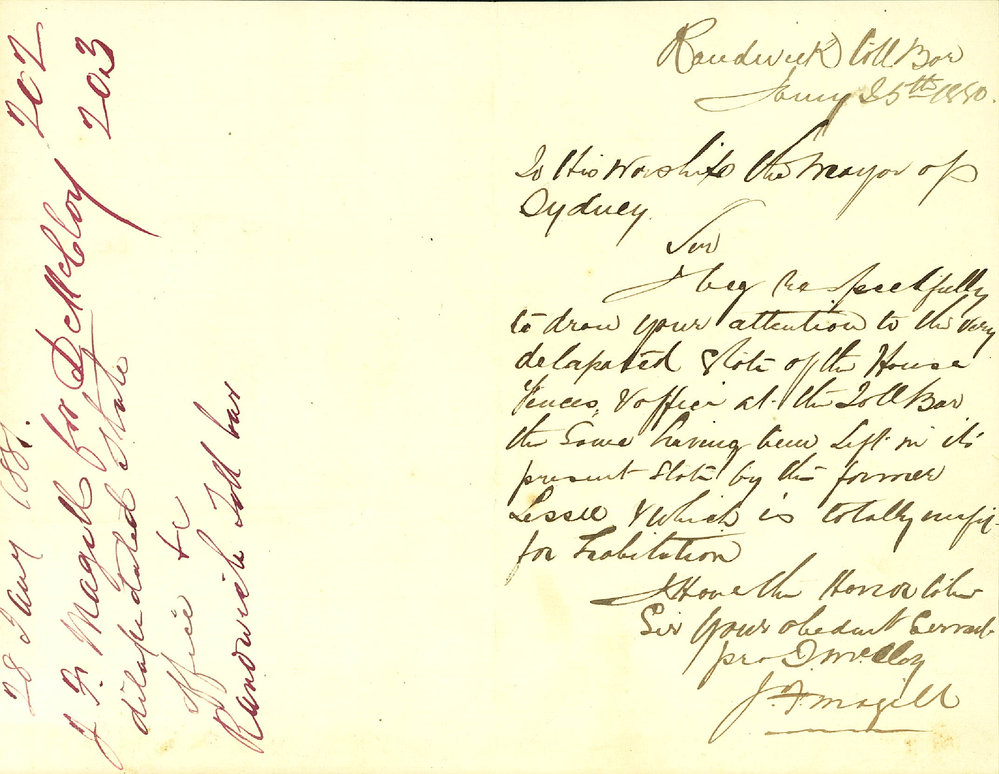 28 Jany 1881.
J. F. Magill for D McCloy 202
dilapidated state 203
office &c
Randwick Toll bar
Randwick Toll Bar
Jany 25th 1880.
To His Worship the Mayor of
Sydney.
Sir
I beg Respectfully
to draw your attention to the very
delapated State of the House
Fences, & office at the Toll Bar
the Same having been Left in its
present State by the former
Lessee & which is totally unfit
for Habitation
I Have the Honor to be
Sir Your obedient Servant
pro D. McCloy
J. F. Magill